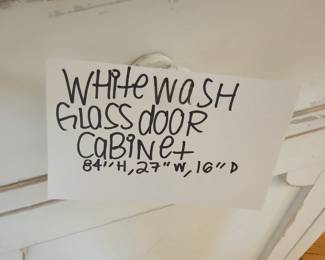 WHitewASH
GLASS dOOR
CABiNet
84"H, 27"W, 16"D